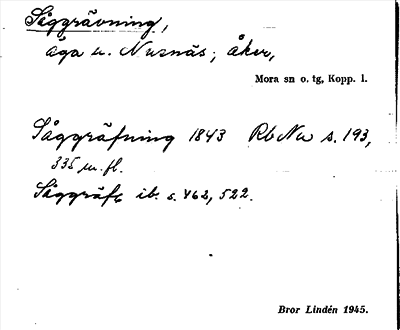 Såggrävning,
äga u. Nusnäs; åker,
Mora sn o. tg, Kopp. l.
Såggräfning 1843 RbNu s. 193,
335 m. fl.
Såggräfs ib. s. 462, 522.
Bror Lindén 1945.